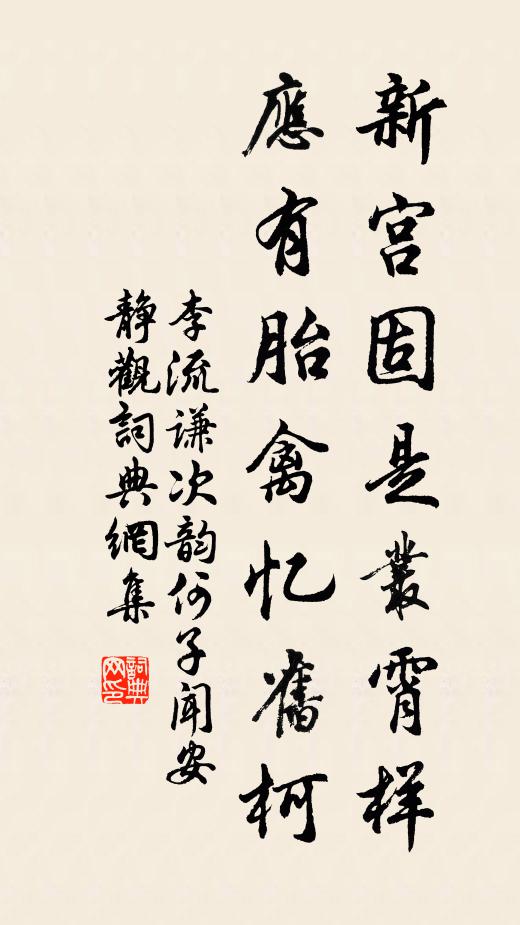 新宫固是叢霄样
應有胎禽忆舊柯
李流谦次韵何子闻安
静觀詞典網集
詞典网印